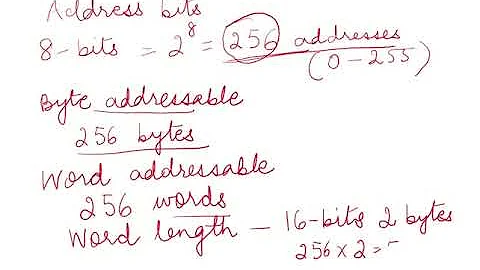 Address bits
8-bits = 2⁸ = 256 addresses
(0-255)
Byte addressable
256 bytes
Word addressable
256 words
Word length - 16-bits 2 bytes
256 × 2 = -